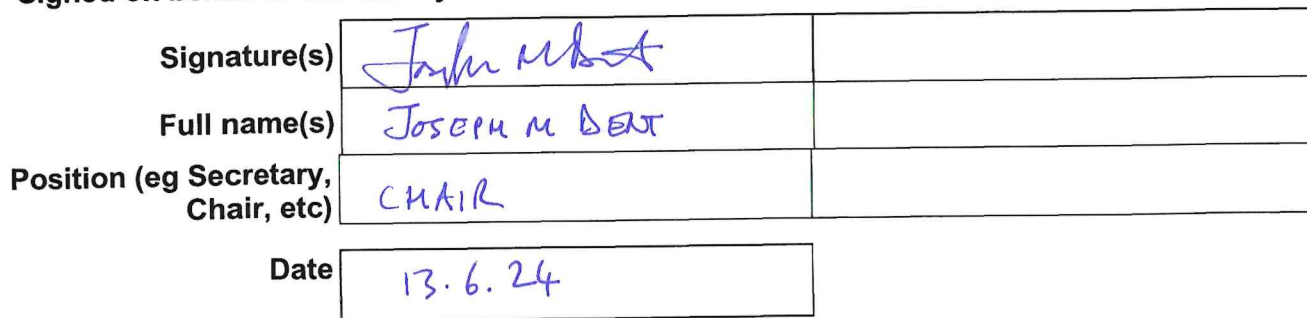 Signature(s)
Full name(s) JOSEPH M DENT
Position (eg Secretary,
Chair, etc) CHAIR
Date 13.6.24